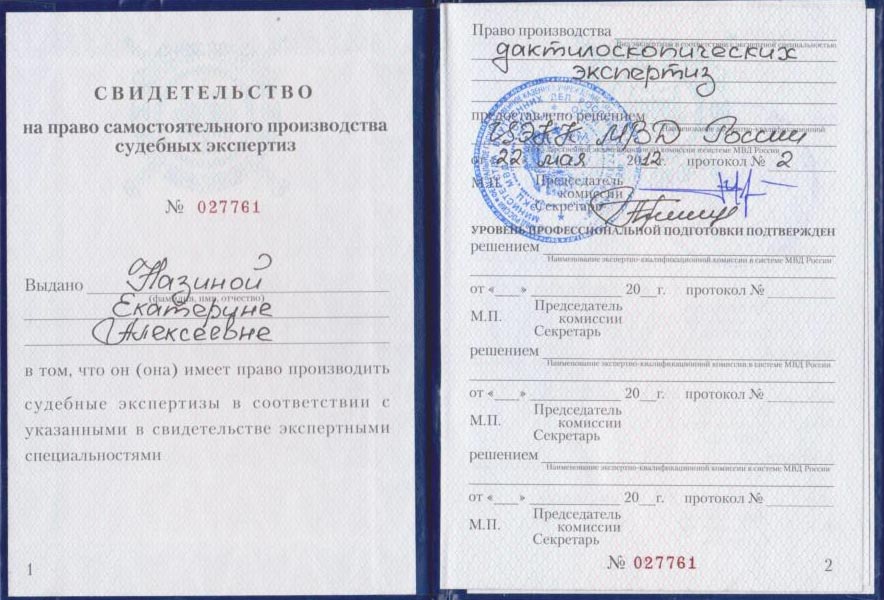 СВИДЕТЕЛЬСТВО
на право самостоятельного производства
судебных экспертиз
№ 027761
Выдано Назиной
(фамилия, имя, отчество)
Екатерине
Алексеевне
в том, что он (она) имеет право производить
судебные экспертизы в соответствии с
указанными в свидетельстве экспертными
специальностями
1
Право производства
Вид экспертизы в соответствии с экспертной специальностью
дактилоскопических
экспертиз
предоставлено решением
МВД России
от «22» мая 2012 протокол № 2
М.П. Председатель
комиссии
Секретарь
УРОВЕНЬ ПРОФЕССИОНАЛЬНОЙ ПОДГОТОВКИ ПОДТВЕРЖДЕН
решением
Наименование экспертно-квалификационной комиссии в системе МВД России
от «___» 20__г. протокол №
Председатель
М.П. комиссии
Секретарь
решением
Наименование экспертно-квалификационной комиссии в системе МВД России
от «___» 20__г. протокол №
Председатель
М.П. комиссии
Секретарь
решением
Наименование экспертно-квалификационной комиссии в системе МВД России
от «___» 20__г. протокол №
Председатель
М.П. комиссии
Секретарь
№ 027761
2